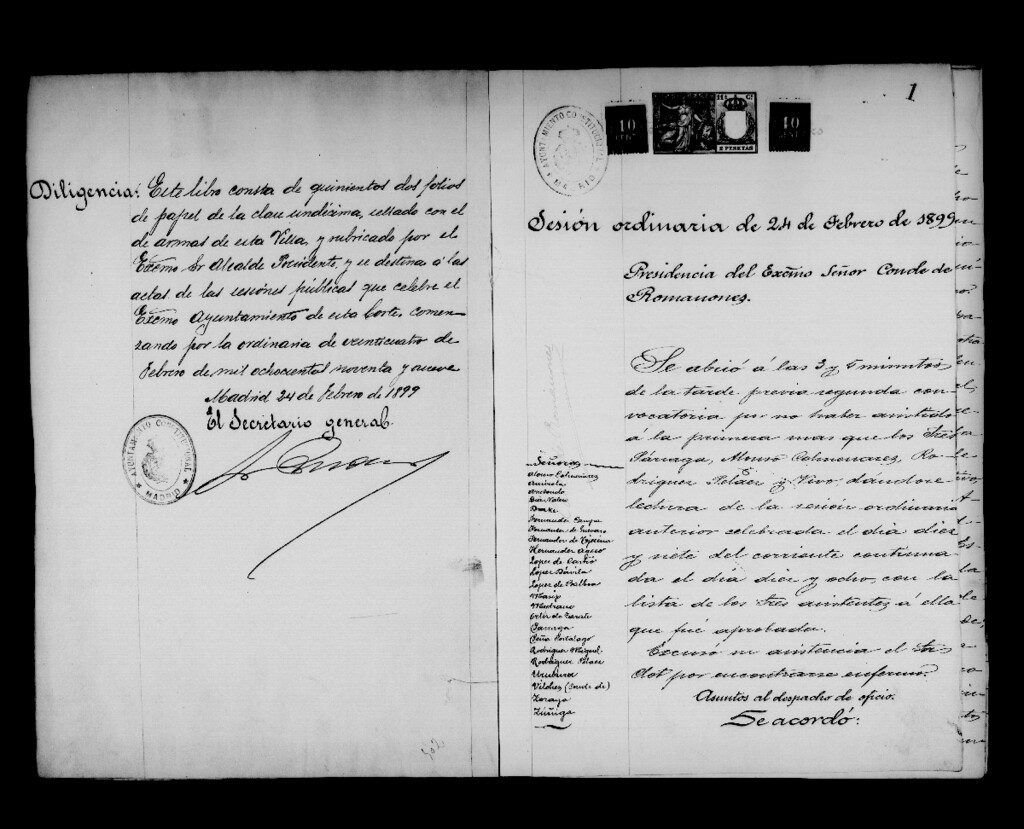 Diligencia: Este libro consta de quinientos dos folios
de papel de la clase undécima, sellado con el
de armas de esta Villa, y rubricado por el
Excmo Sr Alcalde Presidente, y se destina á las
actas de las sesiones públicas que celebre el
Excmo Ayuntamiento de esta Corte, comen-
zando por la ordinaria de veinticuatro de
Febrero de mil ochocientos noventa y nueve
Madrid 24 de Febrero de 1899
El Secretario general.
AYUNTAMIENTO CONSTITUCIONAL
MADRID
1
AYUNTAMIENTO CONSTITUCIONAL
MADRID
10
10
2 PESETAS
Sesión ordinaria de 24 de Febrero de 1899
Presidencia del Excmo Señor Conde de
Romanones.
Señores
Alonso Colmenares
Díaz Valero
Fernandez Campa
Fernandez de Guevara
Fernandez de
Hernandez
Lopez de
Lopez Dávila
Lopez de Balboa
Masip
Medrano
Ortiz de Zarate
Parraga
Peña Costalago
Rodriguez Miguel
Rodriguez Pelaez
Uruburu
Vilches (Conde de)
Zozaya
Zúñiga
Se abrió á las 3 y 5 minutos
de la tarde previa segunda con
vocatoria por no haber asistido
á la primera mas que los Sres
Párraga, Alonso Colmenares, Ro-
driguez Pelaez y Vivo, dándose
lectura de la sesión ordinaria
anterior celebrada el día diez
y siete del corriente continua-
da el día diez y ocho, con la
lista de los Sres asistentes á ella
que fué aprobada.
Excusó su asistencia el Sr
por encontrarse enfermo.
Asuntos al despacho de oficio.
Se acordó: